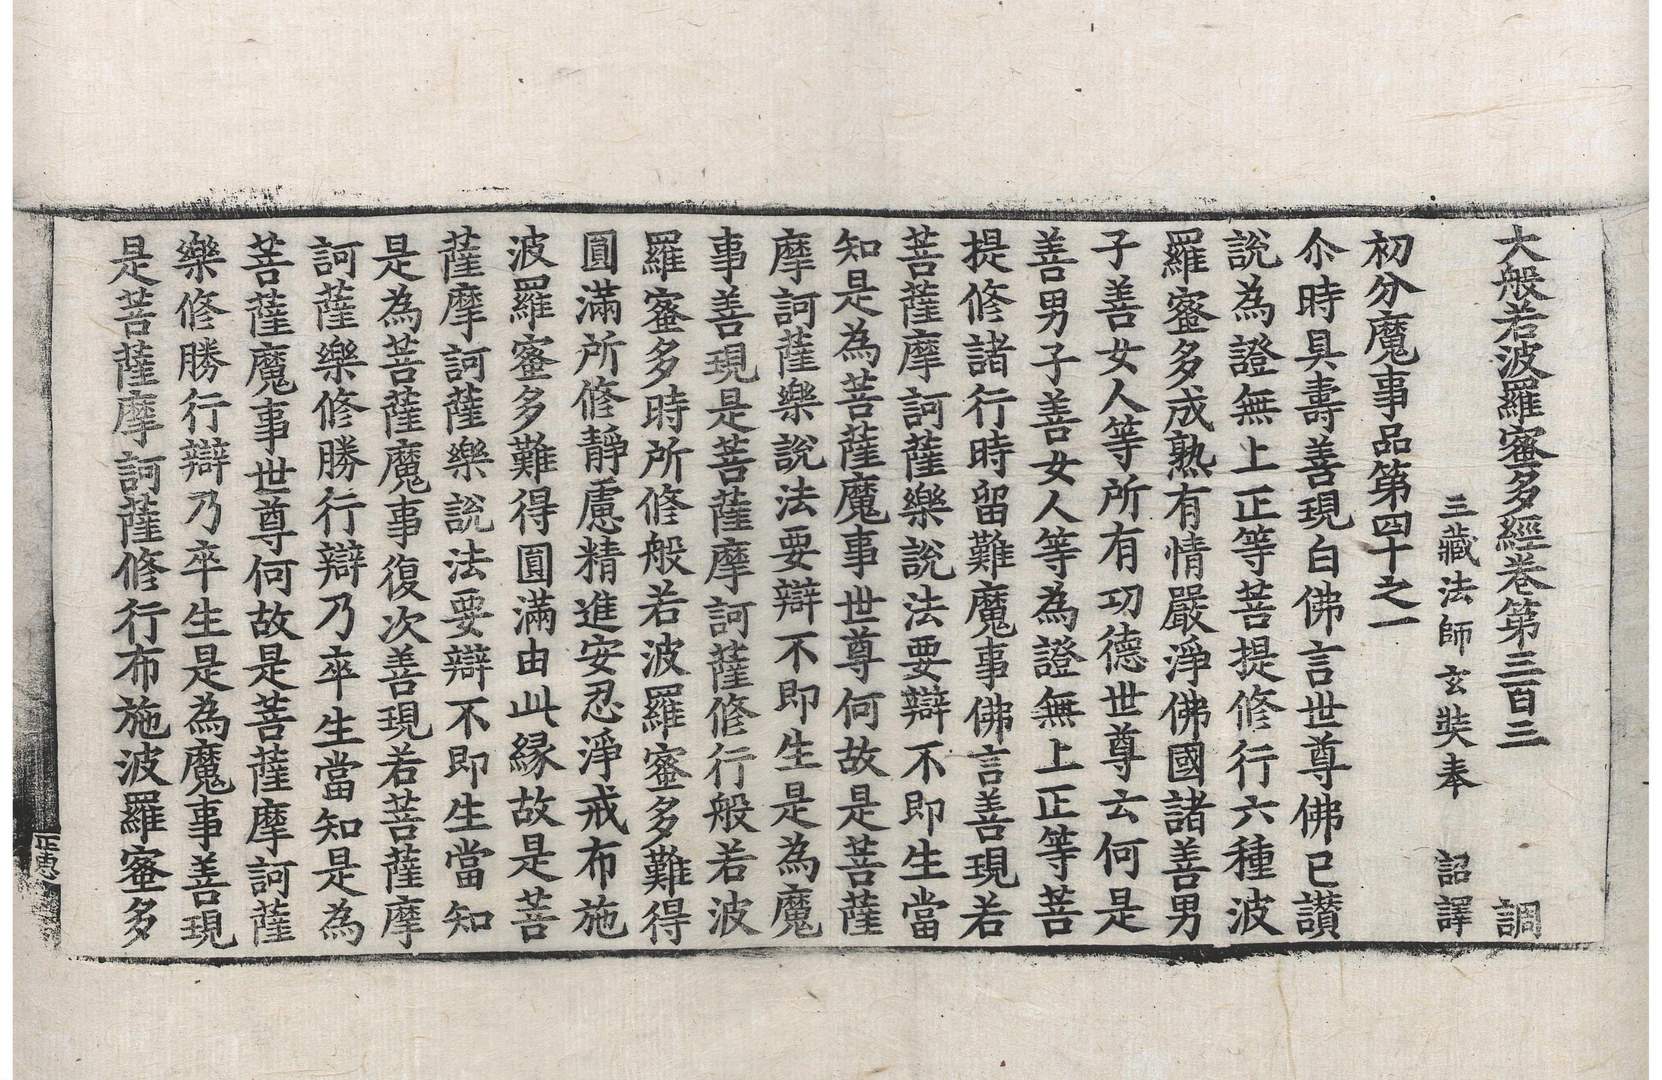 大般若波羅蜜多經卷第三百三　調
三藏法師玄奘奉　詔譯
初分魔事品第四十之一
尒時具壽善現白佛言世尊佛已讃
說為證無上正等菩提修行六種波
羅蜜多成熟有情嚴淨佛國諸善男
子善女人等所有功德世尊云何是
善男子善女人等為證無上正等菩
提修諸行時留難魔事佛言善現若
菩薩摩訶薩樂說法要辯不即生當
知是為菩薩魔事世尊何故是菩薩
摩訶薩樂說法要辯不即生是為魔
事善現是菩薩摩訶薩修行般若波
羅蜜多時所修般若波羅蜜多難得
圓滿所修靜慮精進安忍淨戒布施
波羅蜜多難得圓滿由此緣故是菩
薩摩訶薩樂說法要辯不即生當知
是為菩薩魔事復次善現若菩薩摩
訶薩樂修勝行辯乃卒生當知是為
菩薩魔事世尊何故是菩薩摩訶薩
樂修勝行辯乃卒生是為魔事善現
是菩薩摩訶薩修行布施波羅蜜多